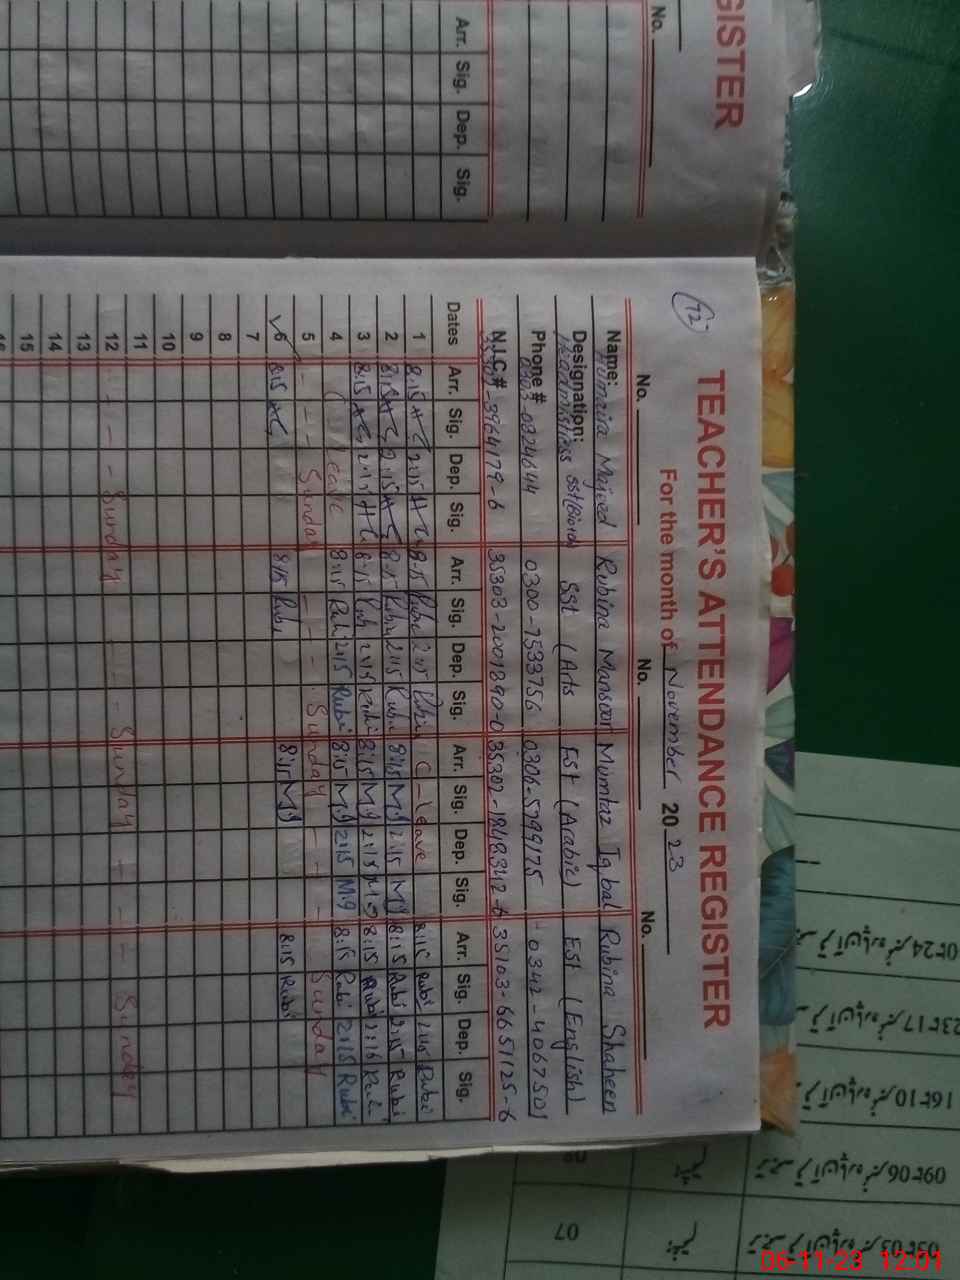 GISTER
No.
Arr. Sig. Dep. Sig.
12
TEACHER'S ATTENDANCE REGISTER
For the month of November 2023
No. No. No.
Name: Humaira Majeed Rubina Mansoor Mumtaz Iqbal Rubina Shaheen
Designation: Headmistress SSt (Arts EST (Arabic) ESt (English)
Phone # 0303-0324644 0300-7533756 0306-5799175 0342-4067501
N.I.C# 35302-3964179-6 35303-2001890-0 35302-1848342-6 35103-6651125-6
Dates Arr. Sig. Dep. Sig. Arr. Sig. Dep. Sig. Arr. Sig. Dep. Sig. Arr. Sig. Dep. Sig.
1 8:15 2:15 8:15 Rubi 2:15 Rubi C-Leave 8:15 Rubi 2:15 Rubi
2 8:15 2:15 8:15 Rubi 2:15 Rubi 8:15 M.9 2:15 M.9 8:15 Rubi 2:15 Rubi
3 8:15 2:15 8:15 Rubi 2:15 Rubi 8:15 M.9 2:15 M.9 8:15 Rubi 2:15 Rubi
4 C-Leave 8:15 Rubi 2:15 Rubi 8:15 M.9 2:15 M.9 8:15 Rubi 2:15 Rubi
5 Sunday Sunday Sunday
6 8:15 8:15 Rubi 8:15 M.9 8:15 Rubi
7
8
9
10
11
12 Sunday Sunday Sunday
13
14
15
16
07
06-11-23 12:01